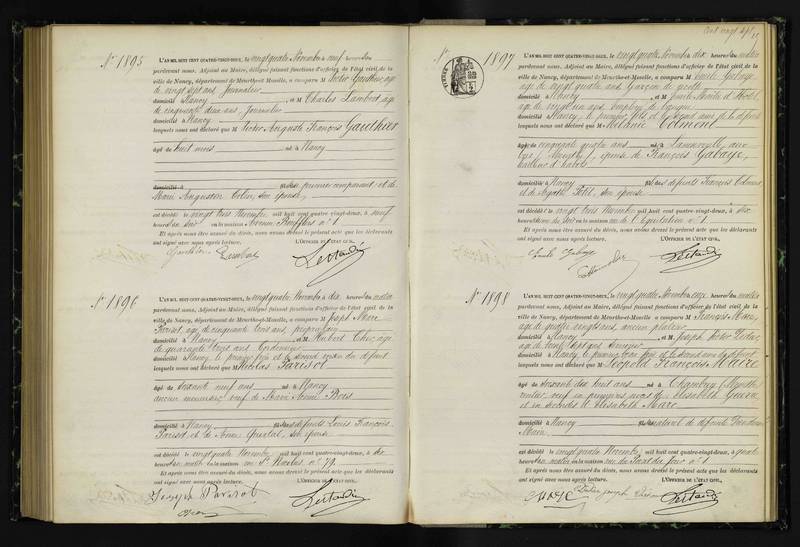 N° 1895
L'AN MIL HUIT CENT QUATRE-VINGT-DEUX, le vingt quatre Novembre à neuf heures du
pardevant nous, Adjoint au Maire, délégué faisant fonctions d'officier de l'état civil de la
ville de Nancy, département de Meurthe-et-Moselle, a comparu M Victor Gauthier, âgé
de vingt sept ans, Journalier
domicilié à Nancy, et M Charles Lambert, âgé
de cinquante deux ans, Journalier
domicilié à Nancy
lesquels nous ont déclaré que M Victor Auguste François Gauthier
âgé de huit mois né à Nancy
domicilié à fils du premier comparant et de
Marie Augustine Colin, son épouse,
est décédé le vingt trois Novembre mil huit cent quatre-vingt-deux, à neuf
heures du soir en la maison n° 1
Et après nous être assuré du décès, nous avons dressé le présent acte que les déclarants
ont signé avec nous après lecture. L'OFFICIER DE L'ÉTAT CIVIL,
Gauthier Lambert
N° 1896
L'AN MIL HUIT CENT QUATRE-VINGT-DEUX, le vingt quatre Novembre à dix heures du matin
pardevant nous, Adjoint au Maire, délégué faisant fonctions d'officier de l'état civil de la
ville de Nancy, département de Meurthe-et-Moselle, a comparu M Joseph Marie
Parisot, âgé de cinquante trois ans, propriétaire
domicilié à Nancy, et M Hubert, âgé
de quarante trois ans, Cordonnier
domicilié à Nancy, le premier fils et le second voisin du défunt
lesquels nous ont déclaré que M Nicolas Parisot
âgé de soixante neuf ans né à Nancy
ancien menuisier, veuf de Marie Anne Bois
domicilié à Nancy fils des défunts Louis François
Parisot, et de Anne, son épouse
est décédé le vingt quatre Novembre mil huit cent quatre-vingt-deux, à dix
heures du matin en la maison rue St Nicolas n° 79
Et après nous être assuré du décès, nous avons dressé le présent acte que les déclarants
ont signé avec nous après lecture. L'OFFICIER DE L'ÉTAT CIVIL,
Joseph Parisot
N° 1897
L'AN MIL HUIT CENT QUATRE-VINGT-DEUX, le vingt quatre Novembre à dix heures du matin
pardevant nous, Adjoint au Maire, délégué faisant fonctions d'officier de l'état civil de la
ville de Nancy, département de Meurthe-et-Moselle, a comparu M Emile Gabaye,
âgé de vingt quatre ans, Garçon de
domicilié à Nancy, et M Emile
âgé de vingt un ans, Employé de
domicilié à Nancy, le premier fils et le second ami de la défunte
lesquels nous ont déclaré que M Mélanie Colment
âgée de cinquante quatre ans née à Laneuveville aux
épouse de François Gabaye,
tailleur d'habits
domicilié à Nancy fille des défunts François Colment
et de Petit, son épouse
est décédée le vingt trois Novembre mil huit cent quatre-vingt-deux, à dix
heures du soir en la maison rue de l'Equitation n° 1
Et après nous être assuré du décès, nous avons dressé le présent acte que les déclarants
ont signé avec nous après lecture. L'OFFICIER DE L'ÉTAT CIVIL,
Emile Gabaye
N° 1898
L'AN MIL HUIT CENT QUATRE-VINGT-DEUX, le vingt quatre Novembre onze heures du matin
pardevant nous, Adjoint au Maire, délégué faisant fonctions d'officier de l'état civil de la
ville de Nancy, département de Meurthe-et-Moselle, a comparu M François Maire,
âgé de quatre vingts ans, ancien
domicilié à Nancy, et M Joseph Victor
âgé de trente sept ans
domicilié à Nancy, le premier frère et le second de la défunte
lesquels nous ont déclaré que M Léopold François Maire
âgé de soixante dix huit ans né à Chambrey
rentier, veuf en premières noces de Elisabeth
et en secondes d'Elisabeth Marc
domicilié à Nancy fils naturel de défunte
Maire
est décédé le vingt quatre Novembre mil huit cent quatre-vingt-deux, à quatre
heures du matin en la maison rue du Pont n° 1
Et après nous être assuré du décès, nous avons dressé le présent acte que les déclarants
ont signé avec nous après lecture. L'OFFICIER DE L'ÉTAT CIVIL,